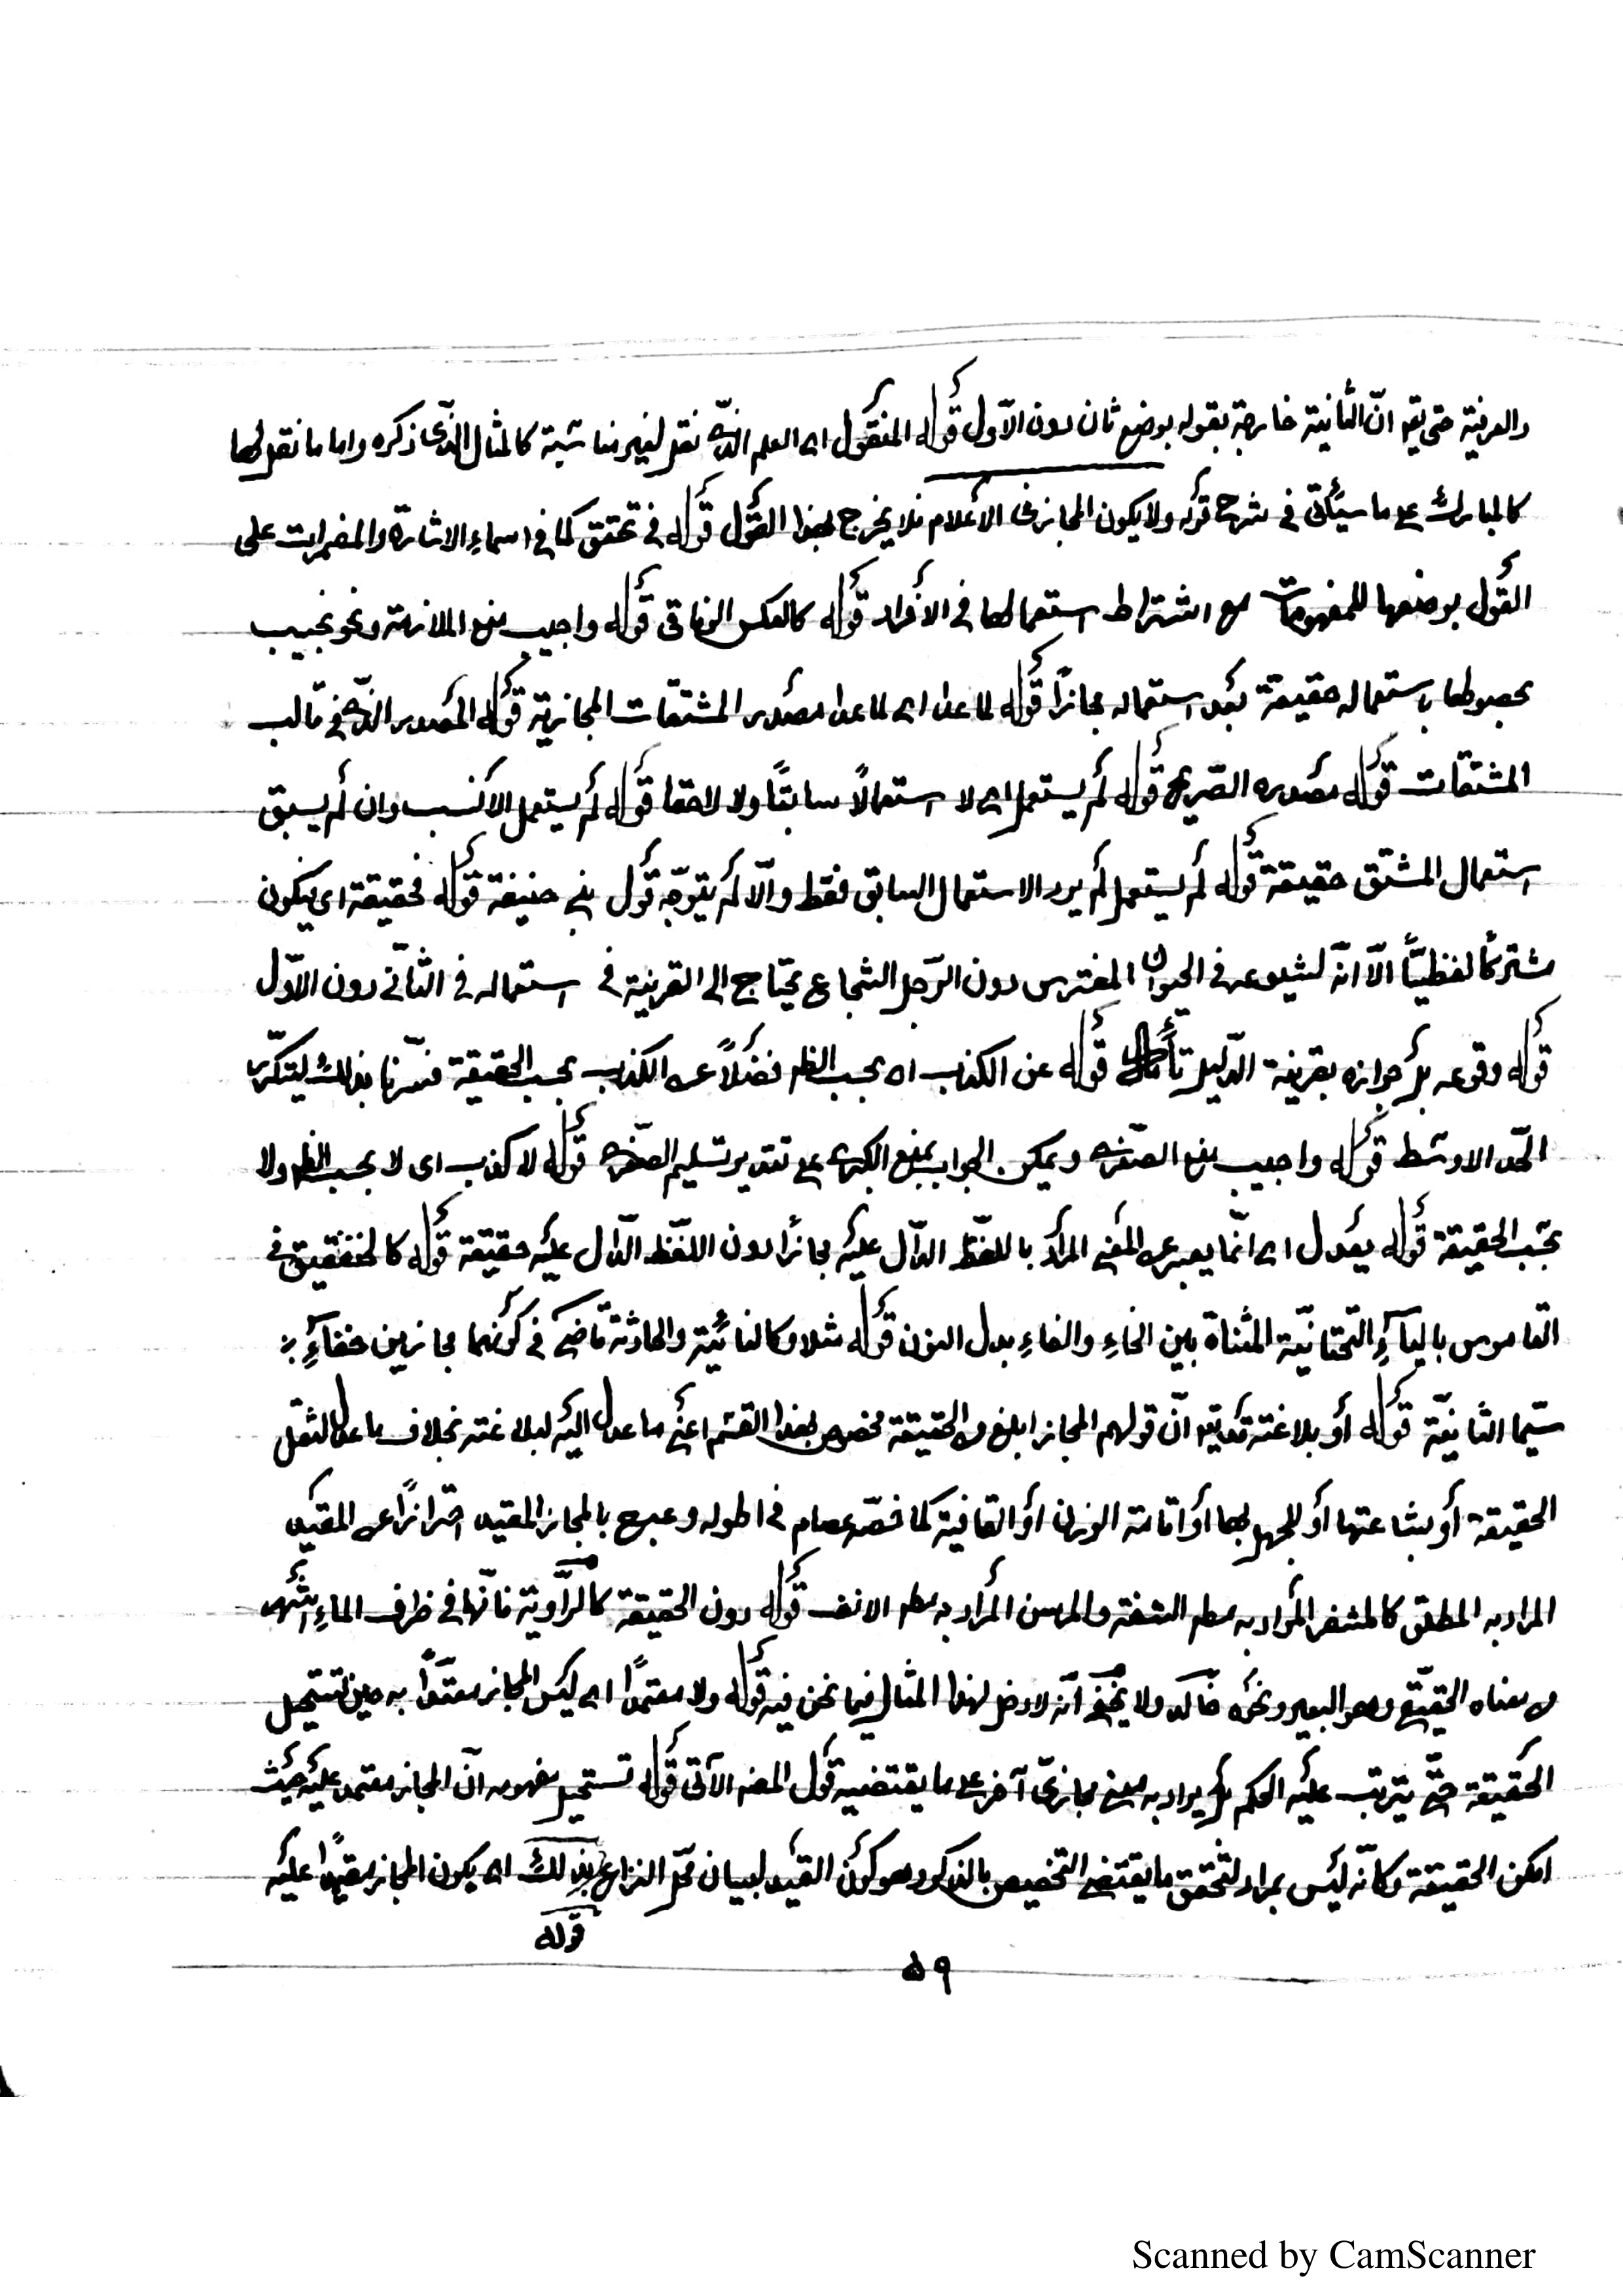 والعرفية حتى يقم انّ الثانية خارجة بقوله بوضع ثان دون الاوّل قوله المنقول اى العلم الذى نقل لغير مناسبة كالمثال الذى ذكره واما ما نقل لها
كالمبارك ع ما سيأتى فى شرح قوله ولا يكون المجاز فى الاعلام فلا يخرج بهذا القول قوله فى تحقق كما فى اسماء الاشارة والمضمرات على
القول بوضعها للمفهومات مع اشتراط استعمالها فى الافراد قوله كالعكس الوفاقى قوله واجيب بمنع الملازمة ونحو نجيب
بحصولها باستعماله حقيقة بعد استعماله مجازاً قوله لما عدا اى لما عدا مصدر المشتقات المجازية قوله المصدر الذى فى قالب
المشتقات قوله مصدره الصريح قوله لم يستعمل اى لا استعمالاً سابقاً ولا لاحقا قوله لم يستعمل الانسب وان لم يسبق
استعمال المشتق حقيقة قوله لم يستعمل لم يرد الاستعمال السابق فقط والّا لم يتوجّه قول بنى حنيفة قوله فحقيقة اى يكون
مشتركاً لفظيّاً الّا انّه لشيوعه فى الحيوان المفترس دون الرّجل الشجاع يحتاج الى القرينة فى استعماله فى الثانى دون الاوّل
قوله وقوعه بل جوازه بقرينة الدّليل تأمل قوله عن الكذب اى بحسب الظم فضلاً عن الكذب بحسب الحقيقة فسّرنا بذلك ليتكرّر
الحّد الاوسط قوله واجيب بمنع الصّغرى ويمكن الجواب بمنع الكبرى ع تقدير تسليم الصّغرى قوله لا كذب اى لا بحسب الظم ولا
بحسب الحقيقة قوله يعدل اى انّما يعبر عن المعنى المراد باللفظ الدّال عليه مجازاً دون اللفظ الدّال عليه حقيقة قوله كالخنفقيق فى
القاموس بالياء التحتانيّة المثناة بين الخاء والفاء بدل النون قوله مثلا وكالنائبة والحادثة قاضى فى كونهما مجازين خفاء
سيّما الثانيّة قوله أو بلاغته قد يقم انّ قولهم المجاز ابلغ من الحقيقة مخصوص بهذا القسم اعنى ما عدل اليه لبلاغته بخلاف ما عدل لثقل
الحقيقة أو بشاعتها أو للجهل بها أو اقامة الوزن أو القافية كما خصّه عصام فى اطوله وعبرع بالمجاز المقيد احترازاً عن المقيد
المراد به المطلق كالمشفر المراد به مطم الشفة والمرسن المراد به مطم الانف قوله دون الحقيقة كالرّاوية فانّها فى ظرف الماء اشهر
من معناه الحقيقى وهو البعير ونحوه خالد ولا يخفى انّه لا دخل لهذا المثال فيما نحن فيه قوله ولا معتمدًا اى ليس المجاز معتدّاً به حين تستحيل
الحقيقة حتى يترتب عليه الحكم بل يراد به معنى مجازىّ آخر على ما يقتضيه قول المصم الآتى قوله تستحيل مفهومه انّ المجاز معتمد عليه حيث
امكن الحقيقة وكأنّه ليس بمراد لتحقق ما يقتضى التخصيص بالذكر وهو كون القيد لبيان محّل النزاع بذلك اى يكون المجاز معتمدًا عليه
قوله
٥٩
Scanned by CamScanner